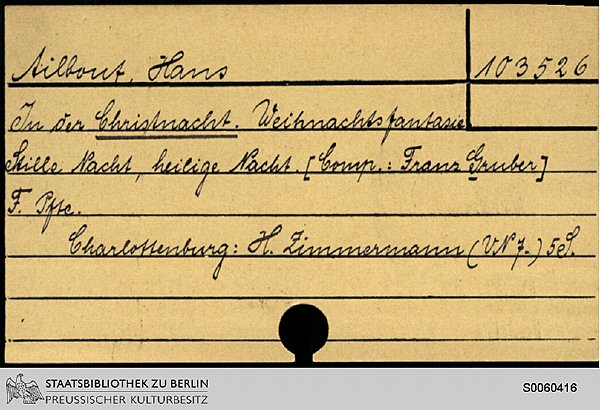 Ailbout, Hans
103526
In der Christnacht. Weihnachtsfantasie
Stille Nacht, heilige Nacht. [Comp.: Franz Gruber]
F. Pfte.
Charlottenburg: H. Zimmermann (VN 7.) 5 S.
STAATSBIBLIOTHEK ZU BERLIN
PREUSSISCHER KULTURBESITZ
S0060416